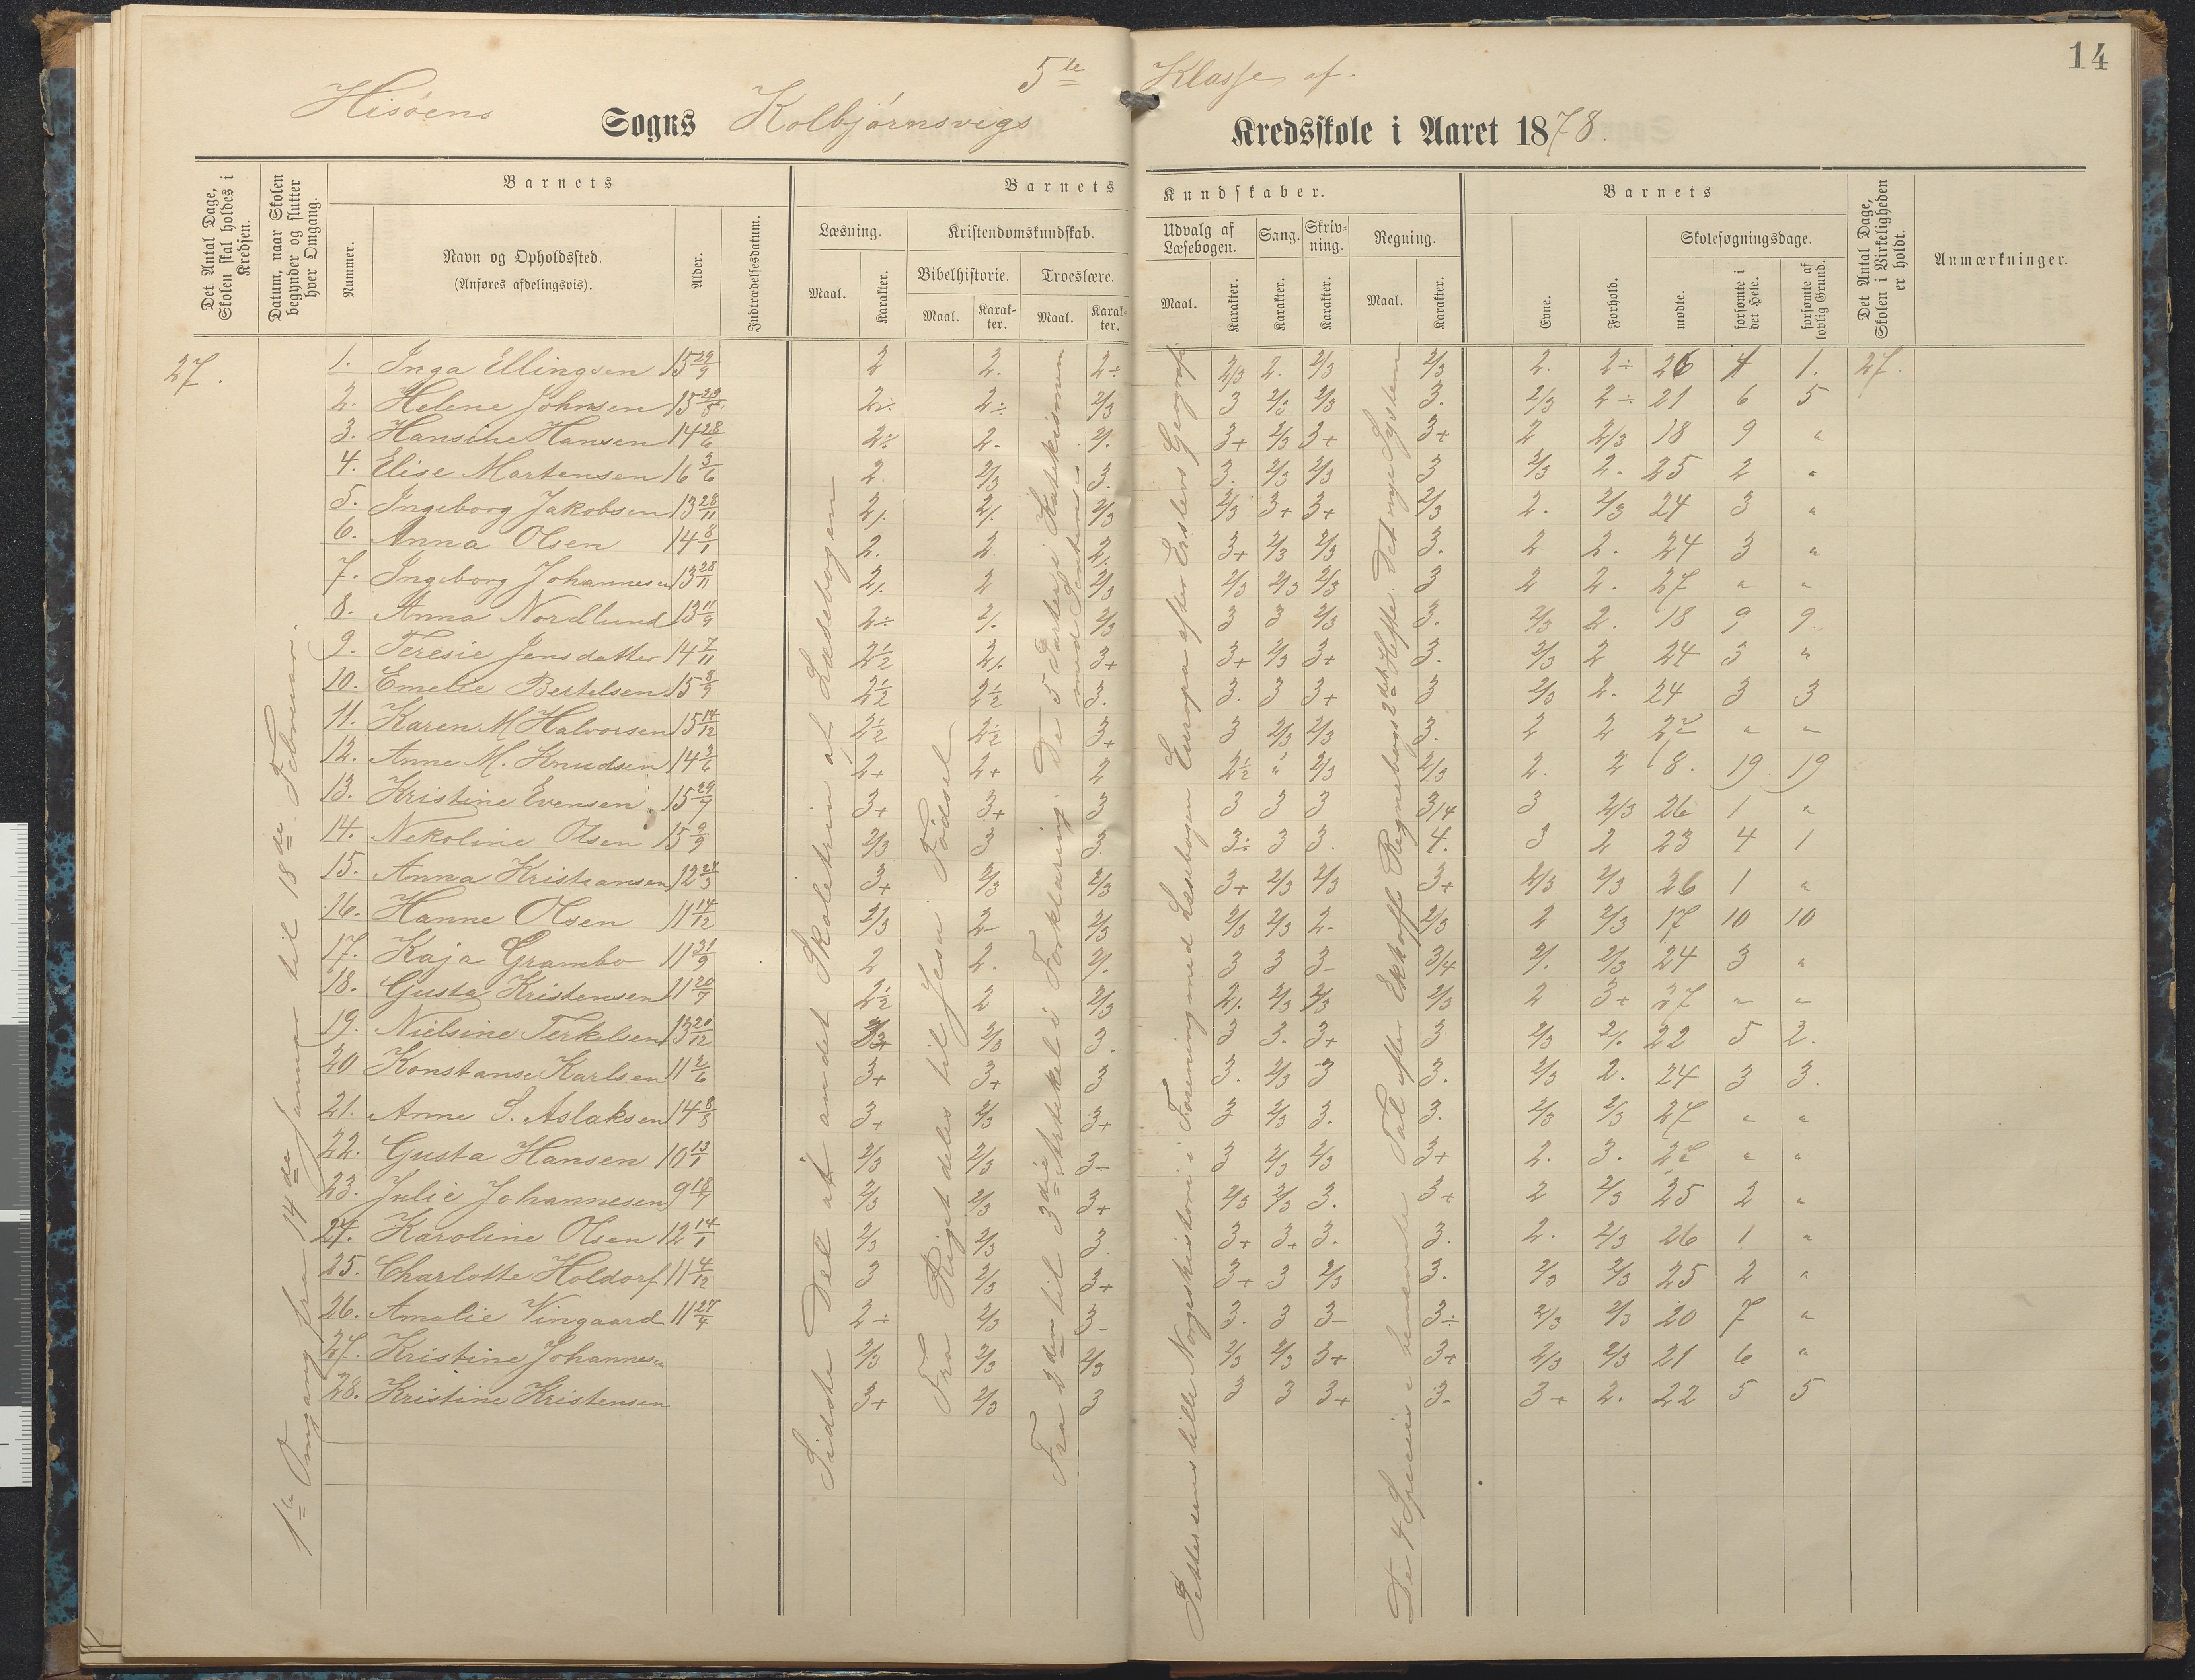 14
5te Klasse af.
Hisøens Sogns Kolbjørnsvigs Kredsskole i Aaret 1878.
Det Antal Dage, Skolen skal holdes i Kredsen.
Datum, naar Skolen begynder og slutter hver Omgang.
Barnets
Nummer.
Navn og Opholdssted.
(Anføres afdelingsvis).
Alder.
Indtrædelsesdatum.
Barnets Kundskaber.
Læsning.
Maal.
Karakter.
Kristendomskundskab.
Bibelhistorie.
Maal.
Karakter.
Troeslære.
Maal.
Karakter.
Udvalg af Læsebogen.
Maal.
Karakter.
Sang.
Karakter.
Skrivning.
Karakter.
Regning.
Maal.
Karakter.
Barnets
Evne.
Forhold.
Skolesøgningsdage.
mødte.
forsømte i det Hele.
forsømte af lovlig Grund.
Det Antal Dage, Skolen i Virkeligheden er holdt.
Anmærkninger.
27.
1ste Omgang fra 14de Januar til 18de Februar.
Sidste Del af andet Skoletrin af Læsebogen
Fra Riget deles til Jesu Fødsel
Fra 2den til 3die Artikel i Forklaring. De 5 Parter i Katekismen
Pettersens lille Norgeshistorie i Forening med Læsebogen Europa efter Erslevs Geografi
De 4 Species i Tal efter Ekhoffs Regnebogs 2det Hefte. Det nye System
1. Inga Ellingsen 15 29/9 2 2. 2÷ 2/3 2. 2/3 2/3 2. 2÷ 26 1 1. 27.
2. Helene Johnsen 2÷ 2÷ 2/3 3 2/3 2/3 3. 2/3 2÷ 21 6 5
3. Hansine Hansen 14 28/6 2÷ 2. 2/. 3+ 2/3 3+ 3+ 2 2/3 18 9 "
4. Elise Martensen 16 3/6 2. 2/3 3. 3. 2/3 2/3 3 2/3 2. 25 2 "
5. Ingeborg Jakobsen 13 28/11 2/. 2/. 2/3 2/3 3+ 3+ 2/3 2. 2/3 24 3 "
6. Anna Olsen 14 8/1 2. 2. 2/. 3+ 2/3 2/3 3. 2 2. 24 3 "
7. Ingeborg Johannesen 13 28/11 2/. 2 2/3 2/3 2/3 2/3 3 2 2. 27 " "
8. Anna Nordlund 13 11/9 2÷ 2/. 2/3 3 3 2/3 3. 2/3 2. 18 9 9.
9. Teresie Jensdatter 14 7/11 2½ 2/. 3+ 3+ 2/3 3+ 3. 2/3 2 24 3 "
10. Emelie Bertelsen 15 8/9 2½ 2½ 3. 3. 3 3+ 3 2/3 2. 24 3 3
11. Karen M Halvorsen 15 14/12 2½ 2½ 3+ 3 2/3 2/3 3. 2 2 27 " "
12. Anne M. Knudsen 14 3/6 2+ 2+ 2 2½ " 2/3 2/3 2. 2 8. 19. 19
13. Kristine Evensen 15 29/7 3+ 3+ 3 3 3 3 3/4 3 2/3 26 1 "
14. Nekoline Olsen 15 9/9 2/3 3 3 3÷ 3 3. 4. 3 2 23 4 1
15. Anna Kristiansen 3+ 2/3 2/3 3+ 2/3 2/3 3+ 2/3 2/3 26 1 "
16. Hanne Olsen 11 14/12 2/3 2- 2/3 2/3 2/3 2- 2/3 2 2/3 17 10 10
17. Kaja Grambo 11 21/9 2 2. 2/. 3 3 3- 3/4 2/. 2/3 24 3 "
18. Gusta Kristensen 11 20/7 2½ 2 2/3 2/. 2/3 2/3 2/3 2 3+ 27 " "
19. Nielsine Terkelsen 13 20/12 2/3 3. 3 3. 3+ 3 2/3 2/. 22 5 2.
20 Konstanse Karlsen 11 2/6 3+ 3+ 3 3. 2/3 3 3. 2/3 2. 24 3 3.
21. Anne S. Aslaksen 14 8/3 3+ 2/3 3+ 3 2/3 3. 3. 2/3 2/3 27 " "
22. Gusta Hansen 10 13/1 2/3 2/3 3- 3 2/3 2/3 3+ 2. 3. 27 " "
23. Julie Johannesen 9 18/7 2/3 2/3 3+ 2/3 2/3 3. 3+ 2 2/3 25 2 "
24. Karoline Olsen 12 14/1 2/3 2/3 3. 3+ 3+ 3. 3. 2. 2/3 26 1 "
25. Charlotte Holdorf 11 4/12 3 2/3 3+ 3+ 3 2/3 3. 2/3 2/3 25 2 "
26. Amalie Vingaard 11 27/4 2÷ 2/3 3- 3. 3 3- 3÷ 2/3 2/3 20 7 "
27. Kristine Johannesen 2/3 2/3 2/3 2/3 2/3 3+ 3+ 2/3 2/3 21 6 "
28. Kristine Kristensen 3+ 2/3 3 3 3 3+ 3- 3+ 2. 22 5 5